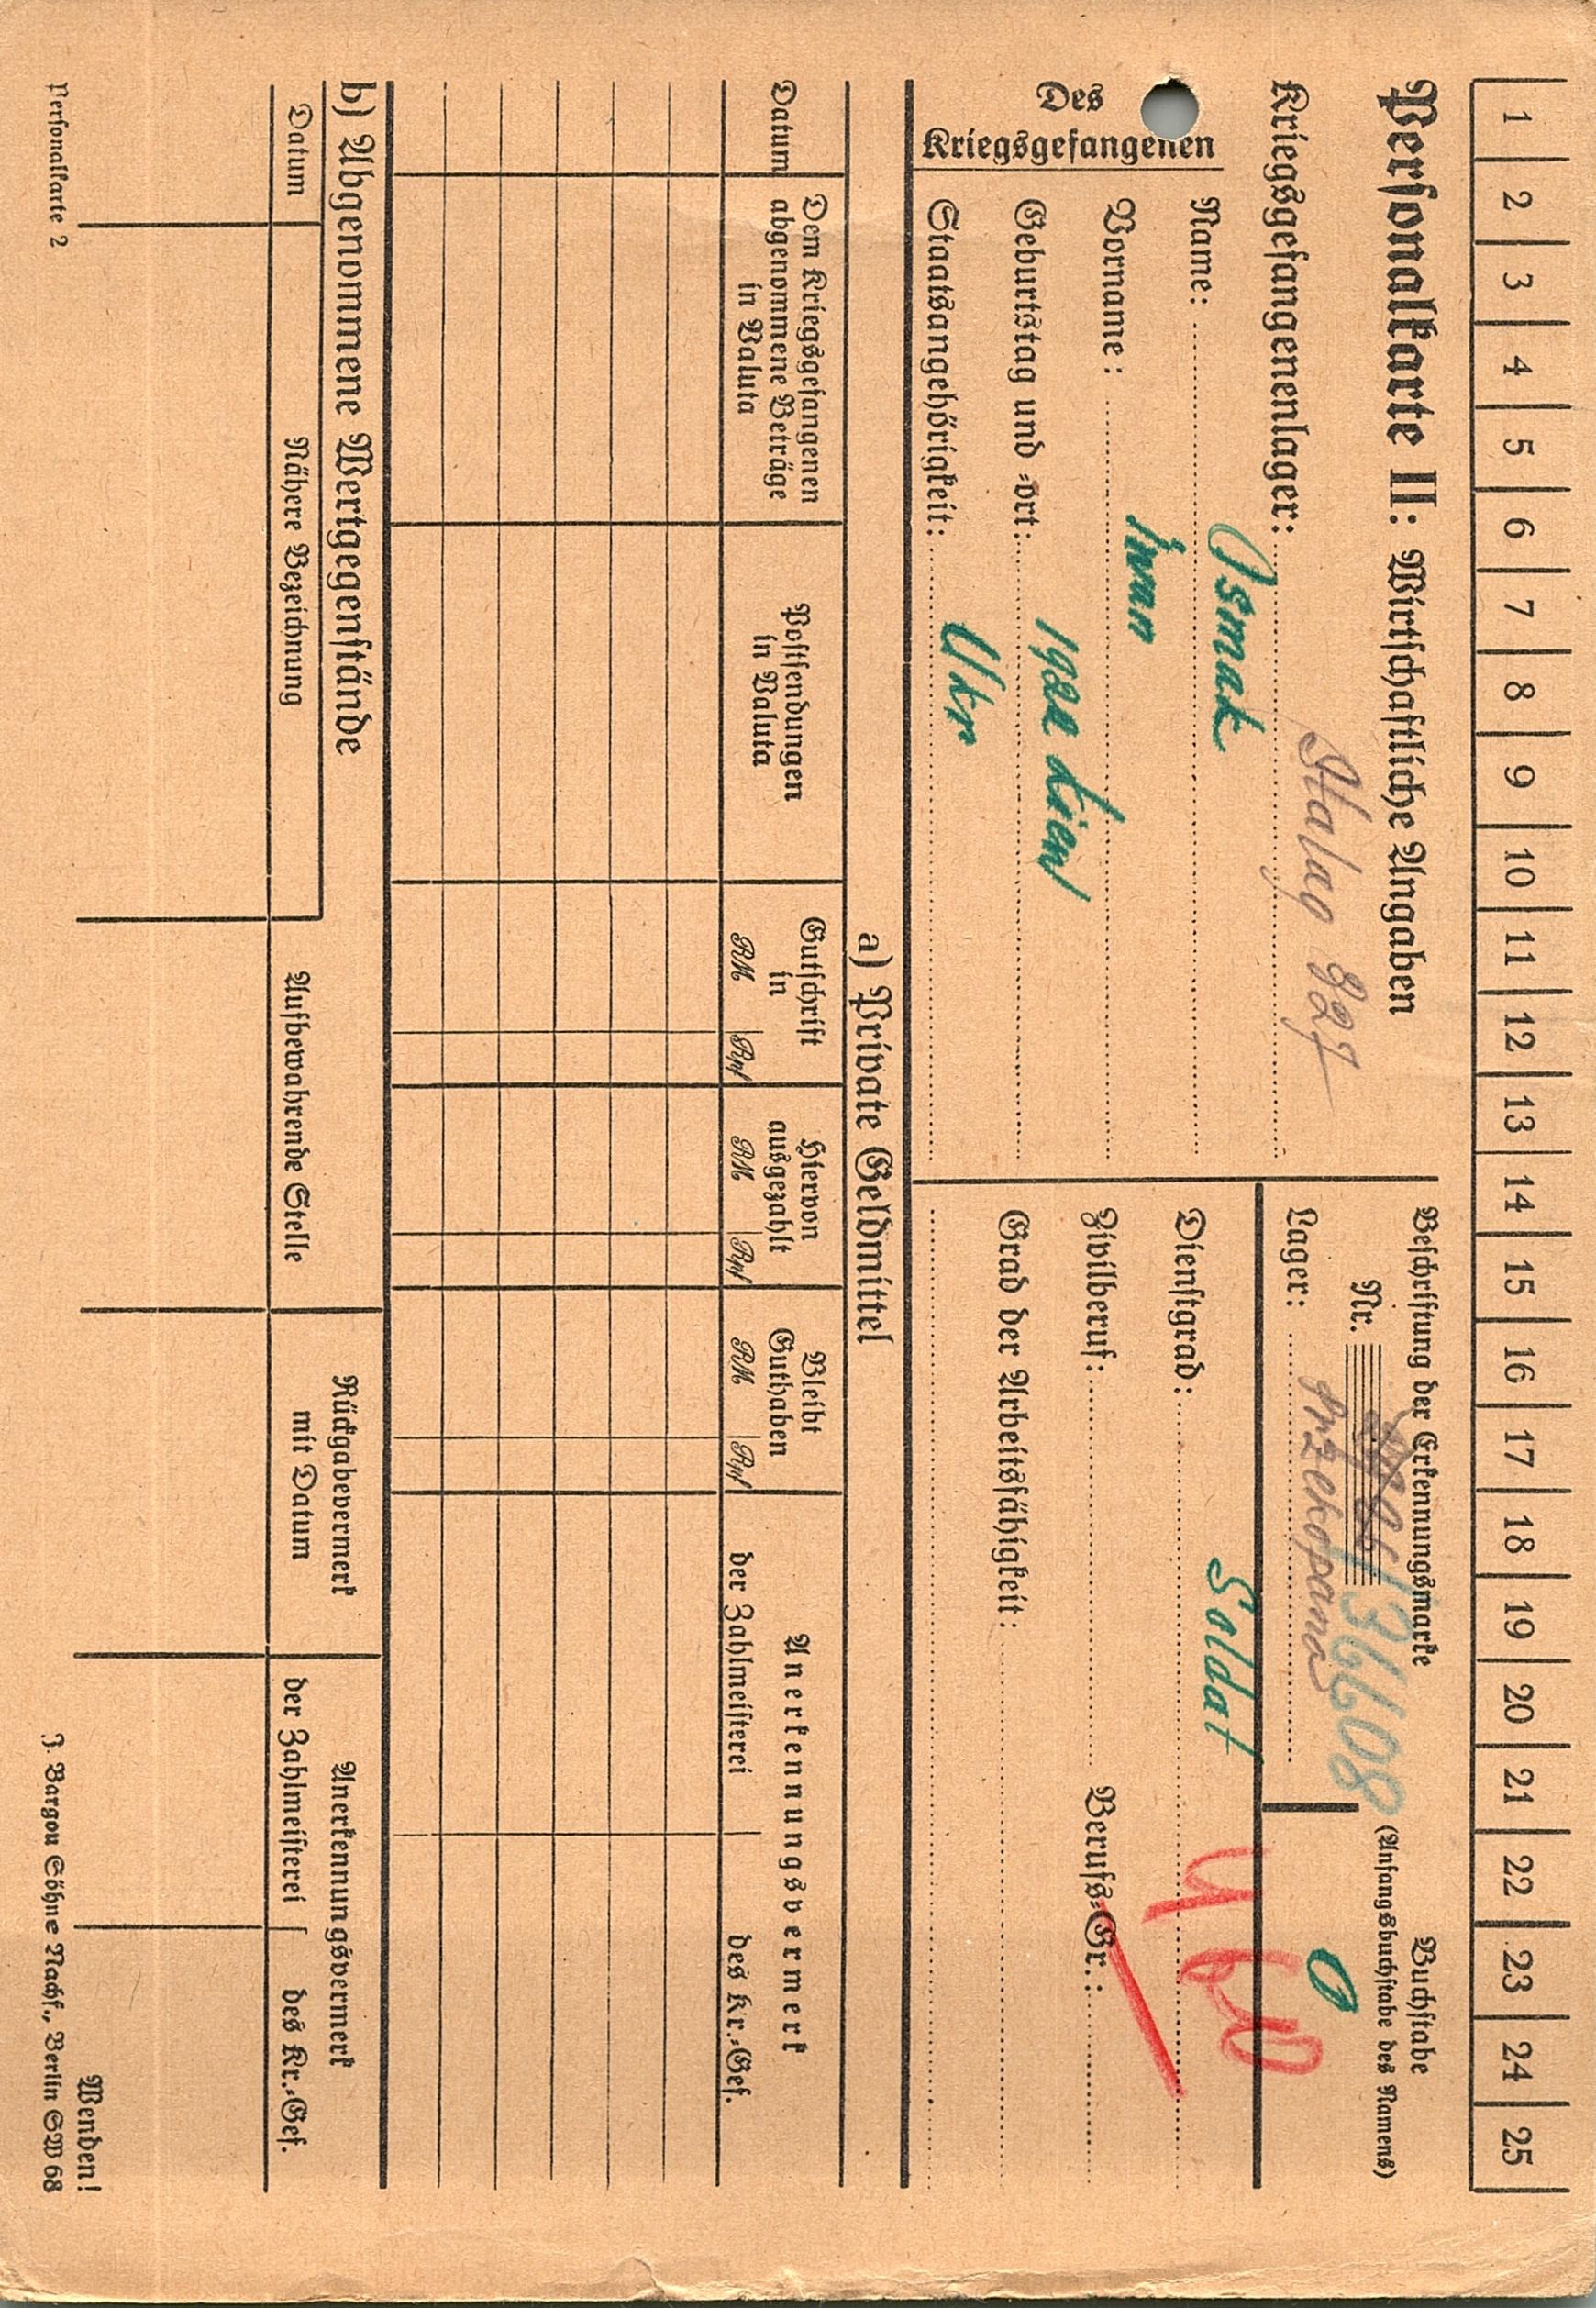 1 2 3 4 5 6 7 8 9 10 11 12 13 14 15 16 17 18 19 20 21 22 23 24 25
Personalkarte II: Wirtschaftliche Angaben
Kriegsgefangenenlager: Stalag 327
Beschriftung der Erkennungsmarke
Nr. 36608
Lager: Przekopana
Buchstabe
(Anfangsbuchstabe des Namens)
O
Des Kriegsgefangenen
Name: Osmak
Vorname: Iwan
Geburtstag und -ort: 1922 Kiew
Staatsangehörigkeit: Ukr
Dienstgrad: Soldat
Zivilberuf:
Berufs-Gr.:
Grad der Arbeitsfähigkeit:
a) Private Geldmittel
Datum
Dem Kriegsgefangenen abgenommene Beträge in Valuta
Postsendungen in Valuta
Gutschrift in
RM Rpf
Hiervon ausgezahlt
RM Rpf
Bleibt Guthaben
RM Rpf
Anerkennungsvermerk
der Zahlmeisterei
des Kr.-Gef.
b) Abgenommene Wertgegenstände
Datum
Nähere Bezeichnung
Aufbewahrende Stelle
Rückgabevermerk mit Datum
Anerkennungsvermerk
der Zahlmeisterei
des Kr.-Gef.
Wenden!
Personalkarte 2
J. Bargou Söhne Nachf., Berlin SW 68